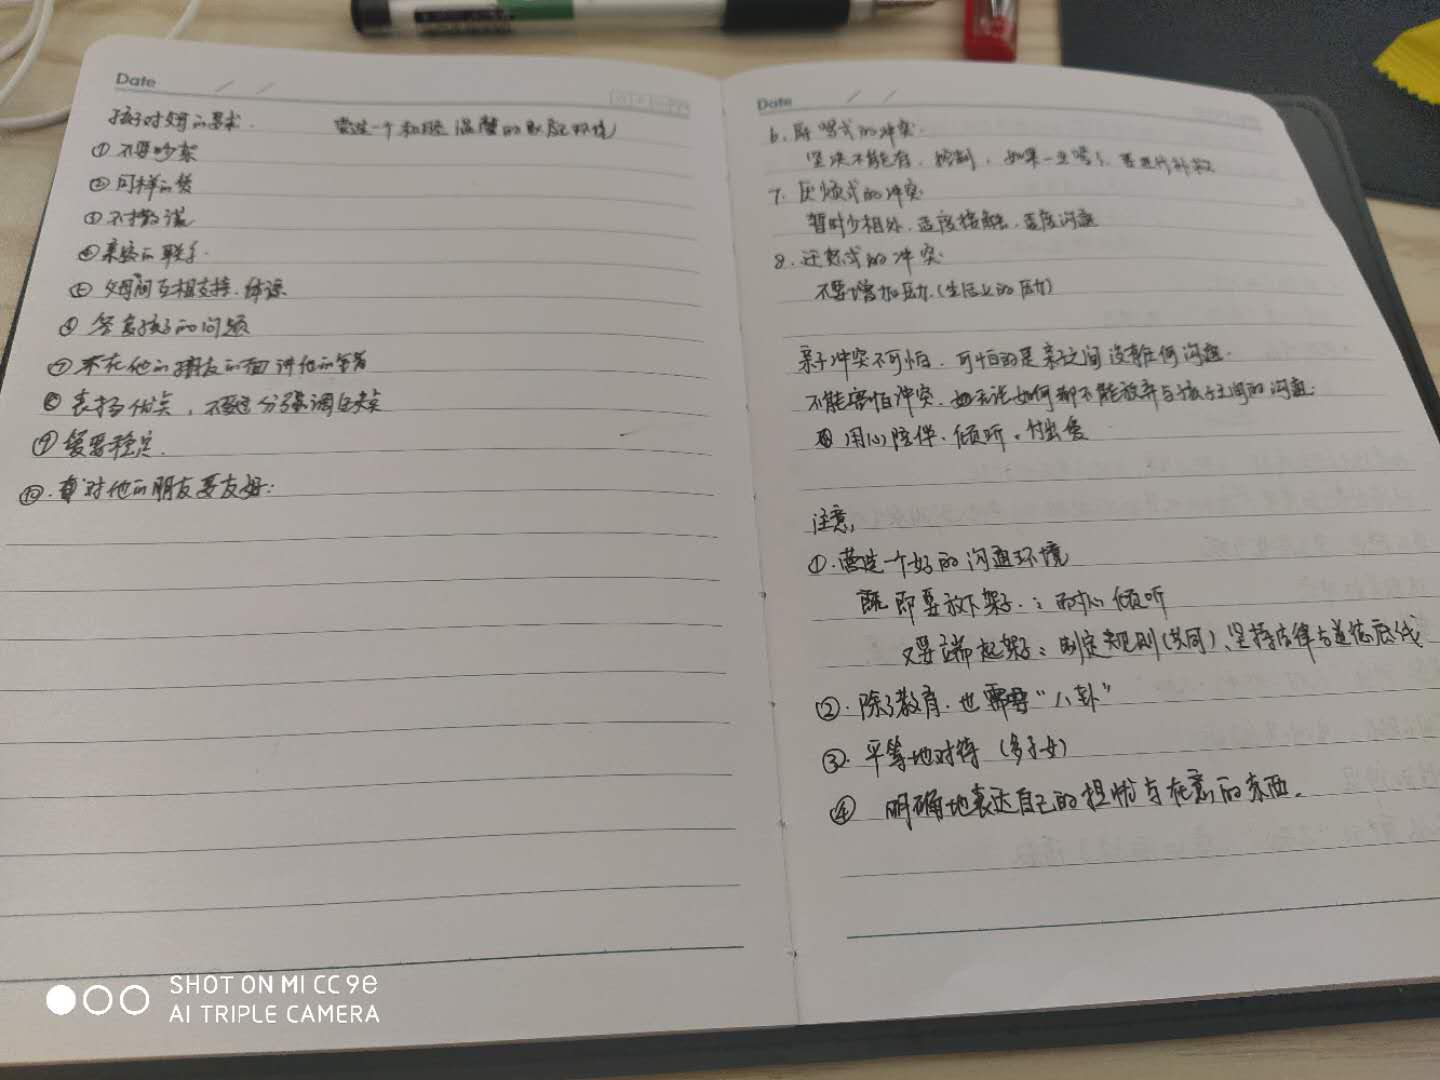 Date / /
孩子对父母的要求. 营造一个和睦温馨的家庭环境
① 不要吵架
② 同样的爱
③ 不撒谎
④ 亲密的联系.
⑤ 父母间互相支持、体谅
⑥ 答复孩子的问题
⑦ 不在他的朋友的面讲他的
⑧ 表扬优点，不要过分强调缺点
⑨ 爱要稳定.
⑩. 对他的朋友要友好;
Date / /
6. 辱骂式的冲突.
坚决不能有、控制，如果一旦骂了，要进行补救
7. 厌烦式的冲突
暂时少相处、适度接触、适度沟通
8. 迁怒式的冲突.
不要增加压力(生活上的压力)
亲子冲突不可怕、可怕的是亲子之间没有任何沟通.
不能害怕冲突、无论如何都不能放弃与孩子之间的沟通.
用心陪伴、倾听、付出爱
注意,
①. 营造一个好的沟通环境
即要放下架子.: 耐心倾听
又要端起架子: 制定规则(共同)、坚持法律与道德底线
②. 除了教育、也需要“八卦”
③. 平等地对待 (多子女)
④ 明确地表达自己的担忧与在意的东西.
SHOT ON MI CC 9e
AI TRIPLE CAMERA